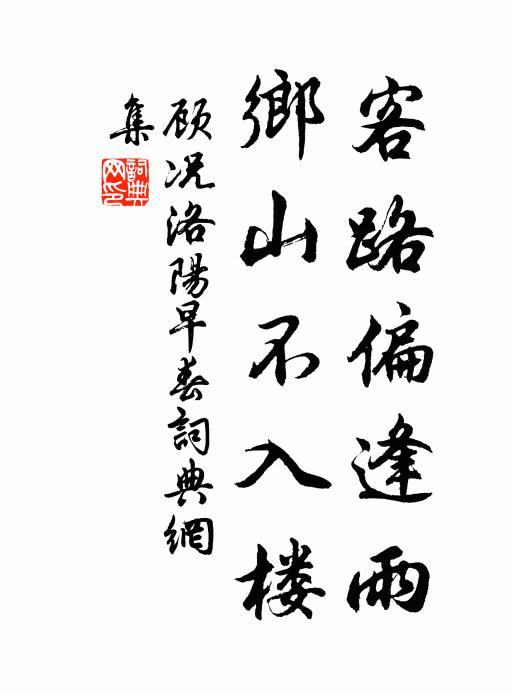 客路偏逢雨
鄉山不入楼
顾况洛陽早春詞典網
集
詞典
网印